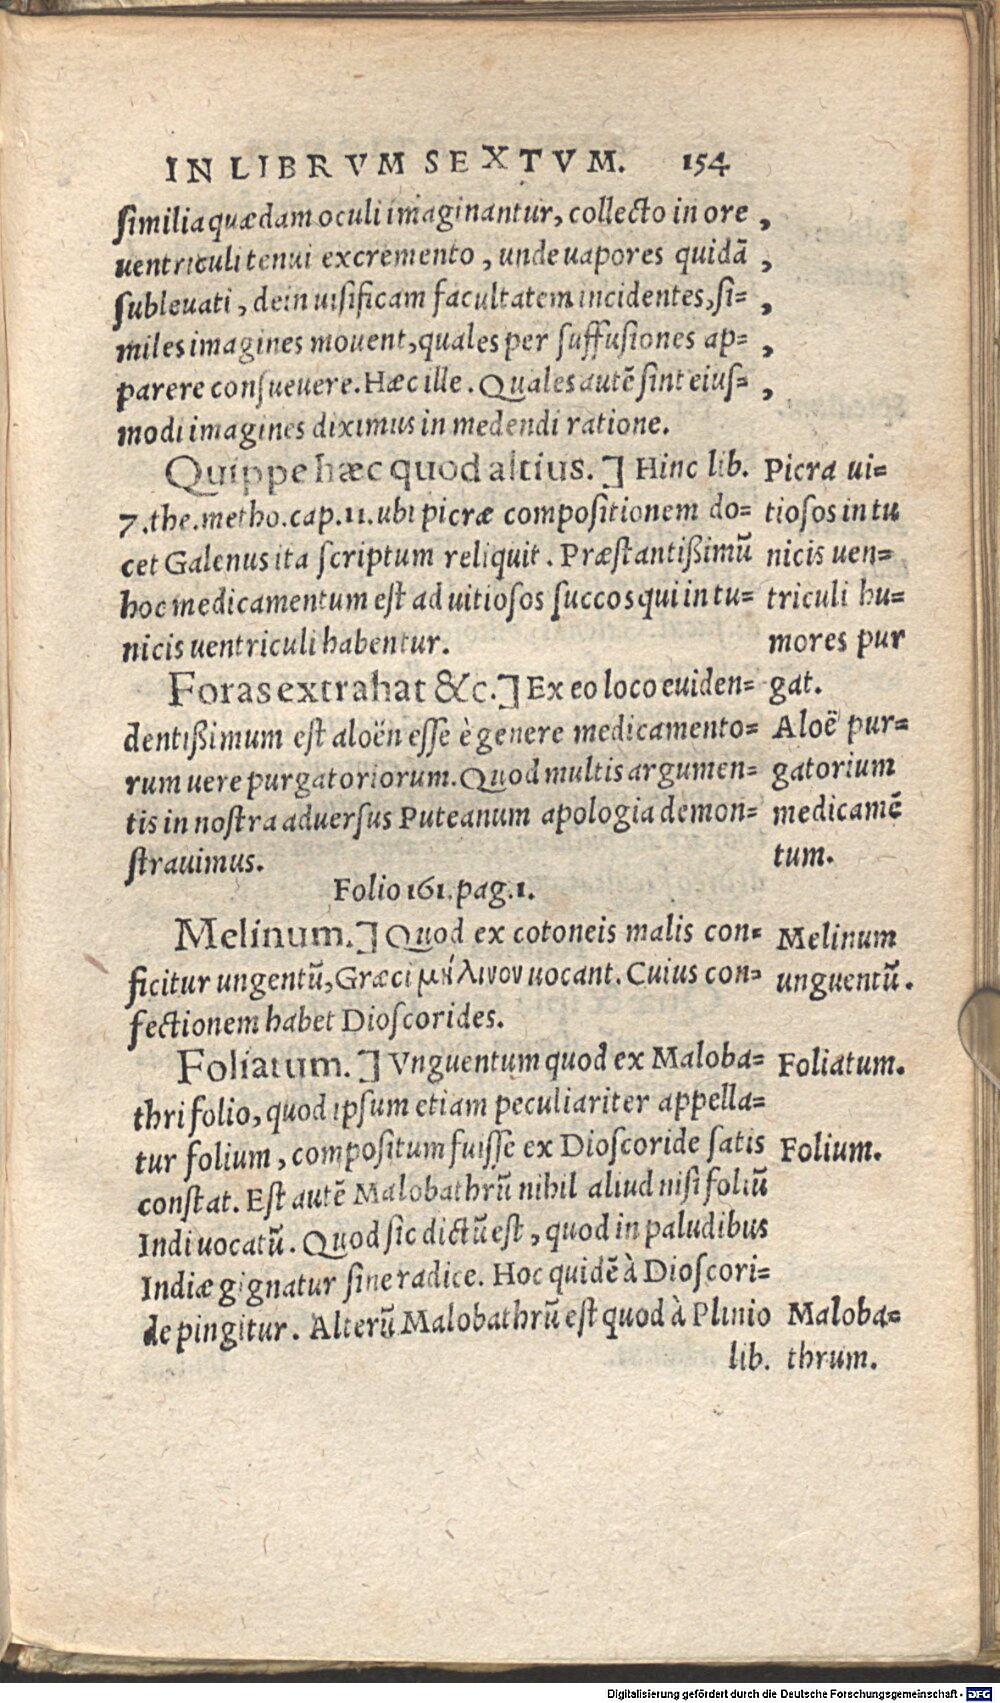 IN LIBRVM SEXTVM. 154
similia quædam oculi imaginantur, collecto in ore ,
uentriculi tenui excremento , unde uapores quidã ,
subleuati , dein uisificam facultatem incidentes, si= ,
miles imagines mouent, quales per suffusiones ap= ,
parere consueuere. Hæc ille . Quales autẽ sint eius= ,
modi imagines diximus in medendi ratione.
Quippe hæc quod altius. ] Hinc lib.
7. the. metho. cap. 11. ubi picræ compositionem do=
cet Galenus ita scriptum reliquit . Præstantißimũ
hoc medicamentum est ad uitiosos succos qui in tu=
nicis uentriculi habentur.
Picra ui=
tiosos in tu
nicis uen=
triculi hu=
mores pur
gat.
Foras extrahat &c. ] Ex eo loco euiden=
dentißimum est aloën esse è genere medicamento=
rum uere purgatoriorum. Quod multis argumen=
tis in nostra aduersus Puteanum apologia demon=
strauimus.
Aloë pur=
gatorium
medicamẽ
tum.
Folio 161. pag. 1.
Melinum. ] Quod ex cotoneis malis con=
ficitur ungentũ, Græci μήλινον uocant. Cuius con=
fectionem habet Dioscorides.
Melinum
unguentũ.
Foliatum. ] Vnguentum quod ex Maloba=
thri folio, quod ipsum etiam peculiariter appella=
tur folium , compositum fuisse ex Dioscoride satis
constat. Est autẽ Malobathrũ nihil aliud nisi foliũ
Indi uocatũ . Quod sic dictũ est , quod in paludibus
Indiæ gignatur sine radice. Hoc quidẽ à Dioscori=
de pingitur . Alterũ Malobathrũ est quod à Plinio
lib.
Foliatum.
Folium.
Maloba=
thrum.
Digitalisierung gefördert durch die Deutsche Forschungsgemeinschaft - DFG